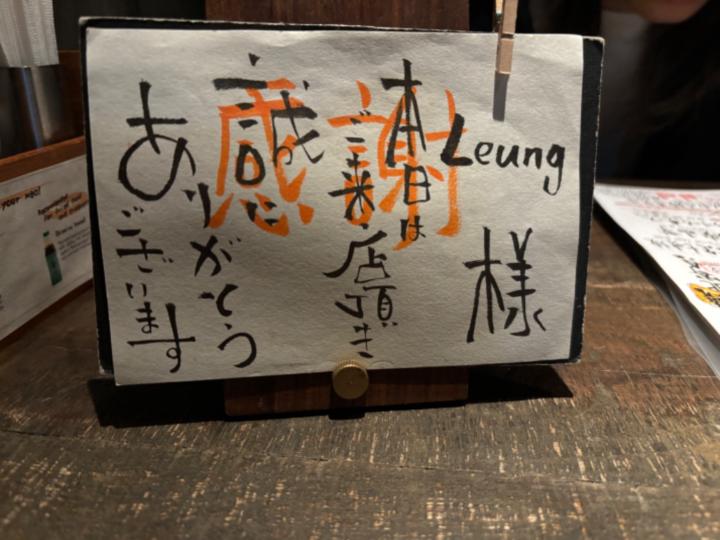 Leung様
本日は
ご来店頂き
誠に
ありがとう
ございます
感謝